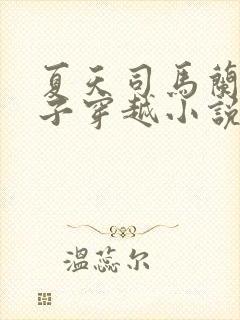 夏天司马蘭
子穿越小說
温蕊尔